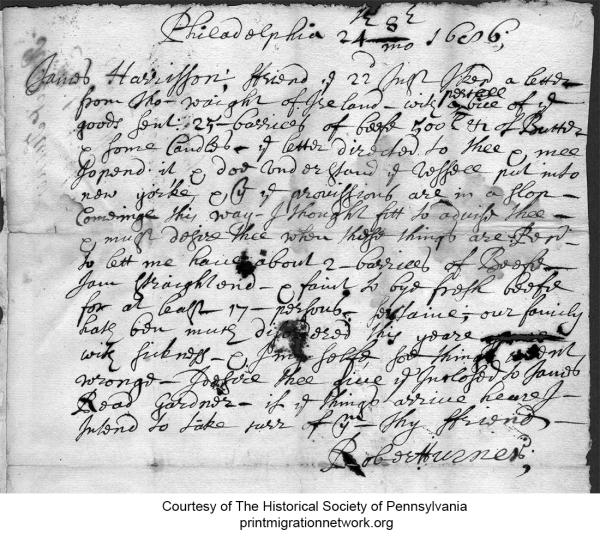 Philadelphia 24th 8th mo 1686;
James Harrisson; ffriend ye 22d Inst I Red a letter
from Tho- waight of Ireland - with pticce of ye
goods sent: 25 - barrices of beefe 500 of Butter
& some Candles - ye letter directed to thee & mee
I opend it & doe understand ye vessell put into
new yorke & ye provissions are in a Slop -
Comeinge this way - I thought fitt to advise thee -
& must desire thee when these things are
to lett me have about 2 - barrices of Beefe -
I am straightend - & faint to bye fresh beefe
for at least - 17 - persons - our family
hath ben much this yeare
with sickness - & my selfe, soe things went
wronge - I desire thee give ye Inclosed to James
Read Gardner - if ye things arrive heare I -
Intend to take of ym - Thy ffriend -
Robert Turner;
Courtesy of The Historical Society of Pennsylvania
printmigrationnetwork.org